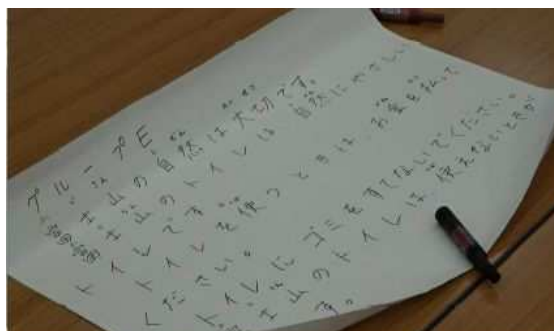 グループE
富士山の自然は大切です。
富士山のトイレは自然にやさしい
トイレです
トイレを使うときは、お金を払って
ください。
トイレにゴミをすてないでください。
富士山のトイレは、使えないときが
す。